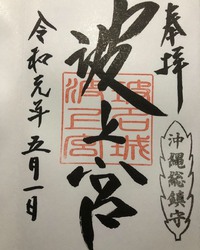 奉拝
沖縄総鎮守
波上宮
令和元年五月一日